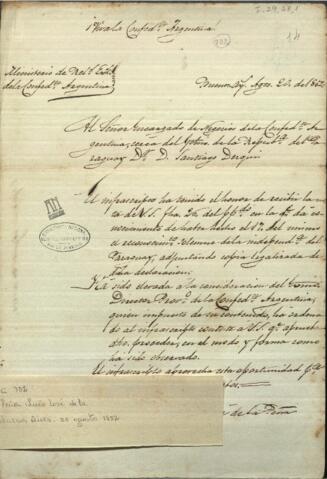 I-29,28,1
¡Viva la Confedⁿ. Argentina!
702
14
Ministerio de Relˢ. Extˢ.
de la Confedⁿ. Argentina
Buenos Ayˢ. Agto. 20. de 1852
Al Señor Encargado de Negocios de la Confedⁿ. Ar-
gentina, cerca del Gobno. de la Repúbˢ. del Pa-
raguay Dʳ. D. Santiago Derqui
El infrascripto ha tenido el honor de recibir la no-
ta de V.S. fha. del ppᵈᵒ. en la qᵉ. da co-
nocimiento de haber hecho el del mismo
el reconocimᵗᵒ. solemne de la independᵃ. del
Paraguay, adjuntando copia legalizada de
dha declaracion.
Ha sido elevada a la consideracion del
Director Provᵒ. de la Confedⁿ. Argentina,
quien impuesto de su contenido, ha ordena-
do al infrascripto conteste a V.S. qᵉ. aprueba
dho. proceder, en el modo y forma como
ha sido observado.
El infrascripto aprovecha esta oportunidad pᵃ.
de la Peña
C 702
Peña, Luis José de la
Buenos Aires. 20 agosto 1852